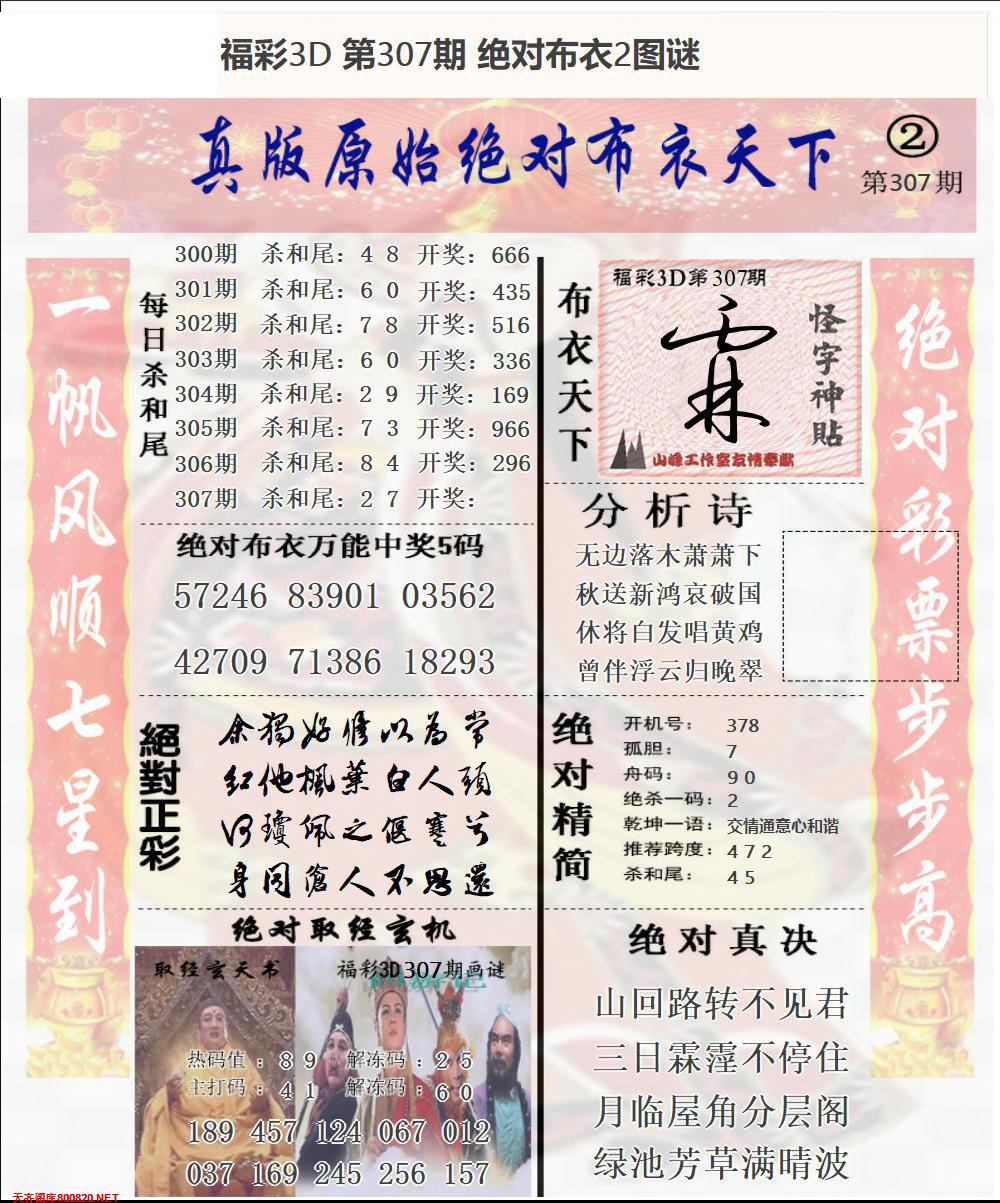 福彩3D 第307期 绝对布衣2图谜
真版原始绝对布衣天下
②
第307期
一帆风顺七星到
每日杀和尾
300期 杀和尾：4 8 开奖：666
301期 杀和尾：6 0 开奖：435
302期 杀和尾：7 8 开奖：516
303期 杀和尾：6 0 开奖：336
304期 杀和尾：2 9 开奖：169
305期 杀和尾：7 3 开奖：966
306期 杀和尾：8 4 开奖：296
307期 杀和尾：2 7 开奖：
绝对布衣万能中奖5码
57246 83901 03562
42709 71386 18293
絕對正彩
余獨好脩以為常
红他楓葉白人頭
何瓊佩之偃蹇兮
身同滄人不思還
绝对取经玄机
取经玄天书
福彩3D307期画谜
热码值：8 9 解冻码：2 5
主打码：4 1 解冻码：6 0
189 457 124 067 012
037 169 245 256 157
布衣天下
福彩3D第307期
霖
怪字神貼
山峰工作室友情奉献
分析诗
无边落木萧萧下
秋送新鸿哀破国
休将白发唱黄鸡
曾伴浮云归晚翠
绝对精简
开机号： 378
孤胆： 7
舟码： 9 0
绝杀一码： 2
乾坤一语： 交情通意心和谐
推荐跨度： 4 7 2
杀和尾： 4 5
绝对真决
山回路转不见君
三日霖霪不停住
月临屋角分层阁
绿池芳草满晴波
绝对彩票步步高
天齐图库800820.NET